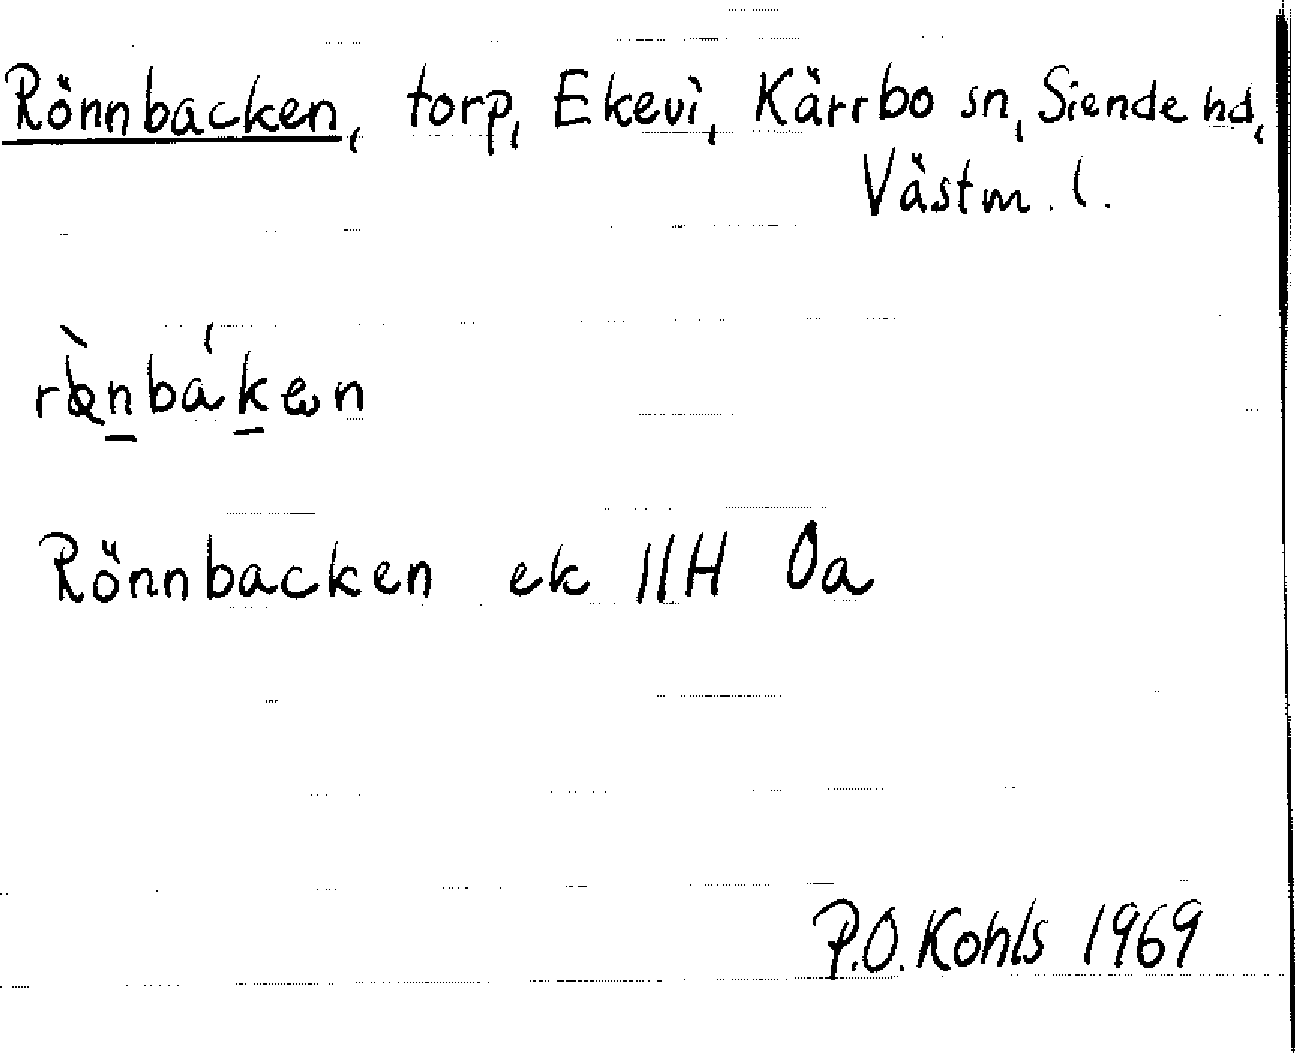 Rönnbacken, torp, Ekevi, Kärrbo sn, Siende hd,
Västm. l.
Rönnbacken ek 11H 0a
P.O. Kohls 1969